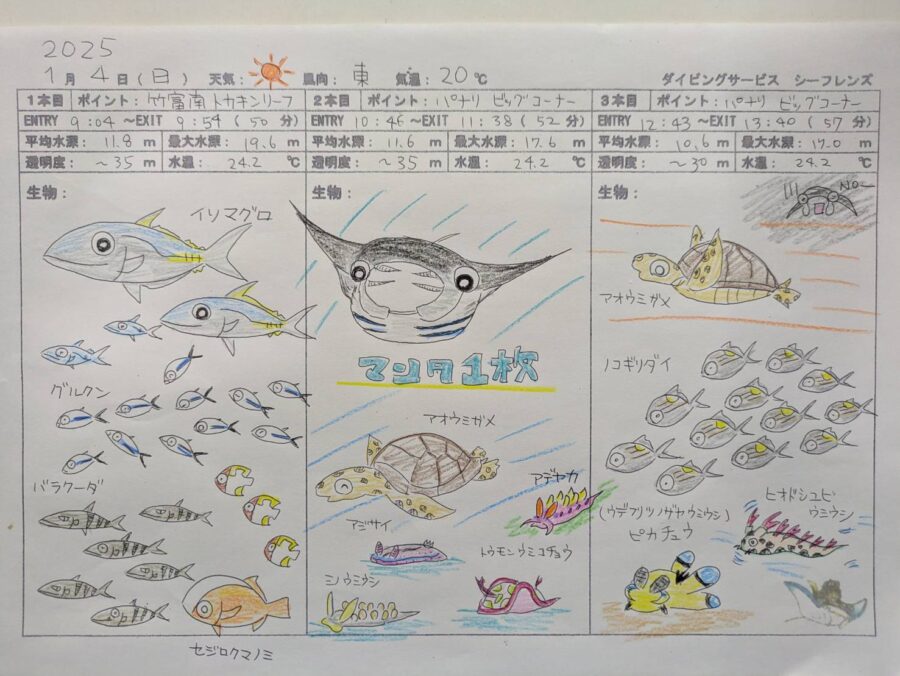 2025
1月 4日(日) 天気: 風向: 東 気温: 20℃ ダイビングサービス シーフレンズ
1本目 ポイント: 竹富南トカキンリーフ
ENTRY 9:04 ~EXIT 9:54 (50 分)
平均水深: 11.8 m 最大水深: 19.6 m
透明度: ~35 m 水温: 24.2 ℃
生物:
イソマグロ
グルクン
バラクーダ
セジロクマノミ
2本目 ポイント: パナリ ビッグコーナー
ENTRY 10:46 ~EXIT 11:38 (52 分)
平均水深: 11.6 m 最大水深: 17.6 m
透明度: ~35 m 水温: 24.2 ℃
マンタ1枚
アオウミガメ
アデヤカ
アジサイ
トウモンウミコチョウ
ミノウミウシ
3本目 ポイント: パナリ ビッグコーナー
ENTRY 12:43 ~EXIT 13:40 (57 分)
平均水深: 10.6 m 最大水深: 17.0 m
透明度: ~30 m 水温: 24.2 ℃
生物:
NO~
アオウミガメ
ノコギリダイ
ヒオドシユビ
ウミウシ
(ウデフリツノザヤウミウシ)
ピカチュウ